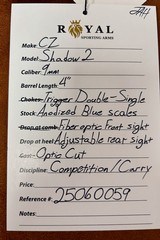 ROYAL
SPORTING ARMS
Make: CZ
Model: Shadow 2
Caliber: 9mm
Barrel Length: 4"
Chokes: Trigger Double-Single
Stock: Anodized Blue scales
Drop at comb: Fiber optic Front sight
Drop at heel: Adjustable rear sight
Gast: Optic Cut
Discipline: Competition/Carry
Price:
Reference #: 25060059
Notes: